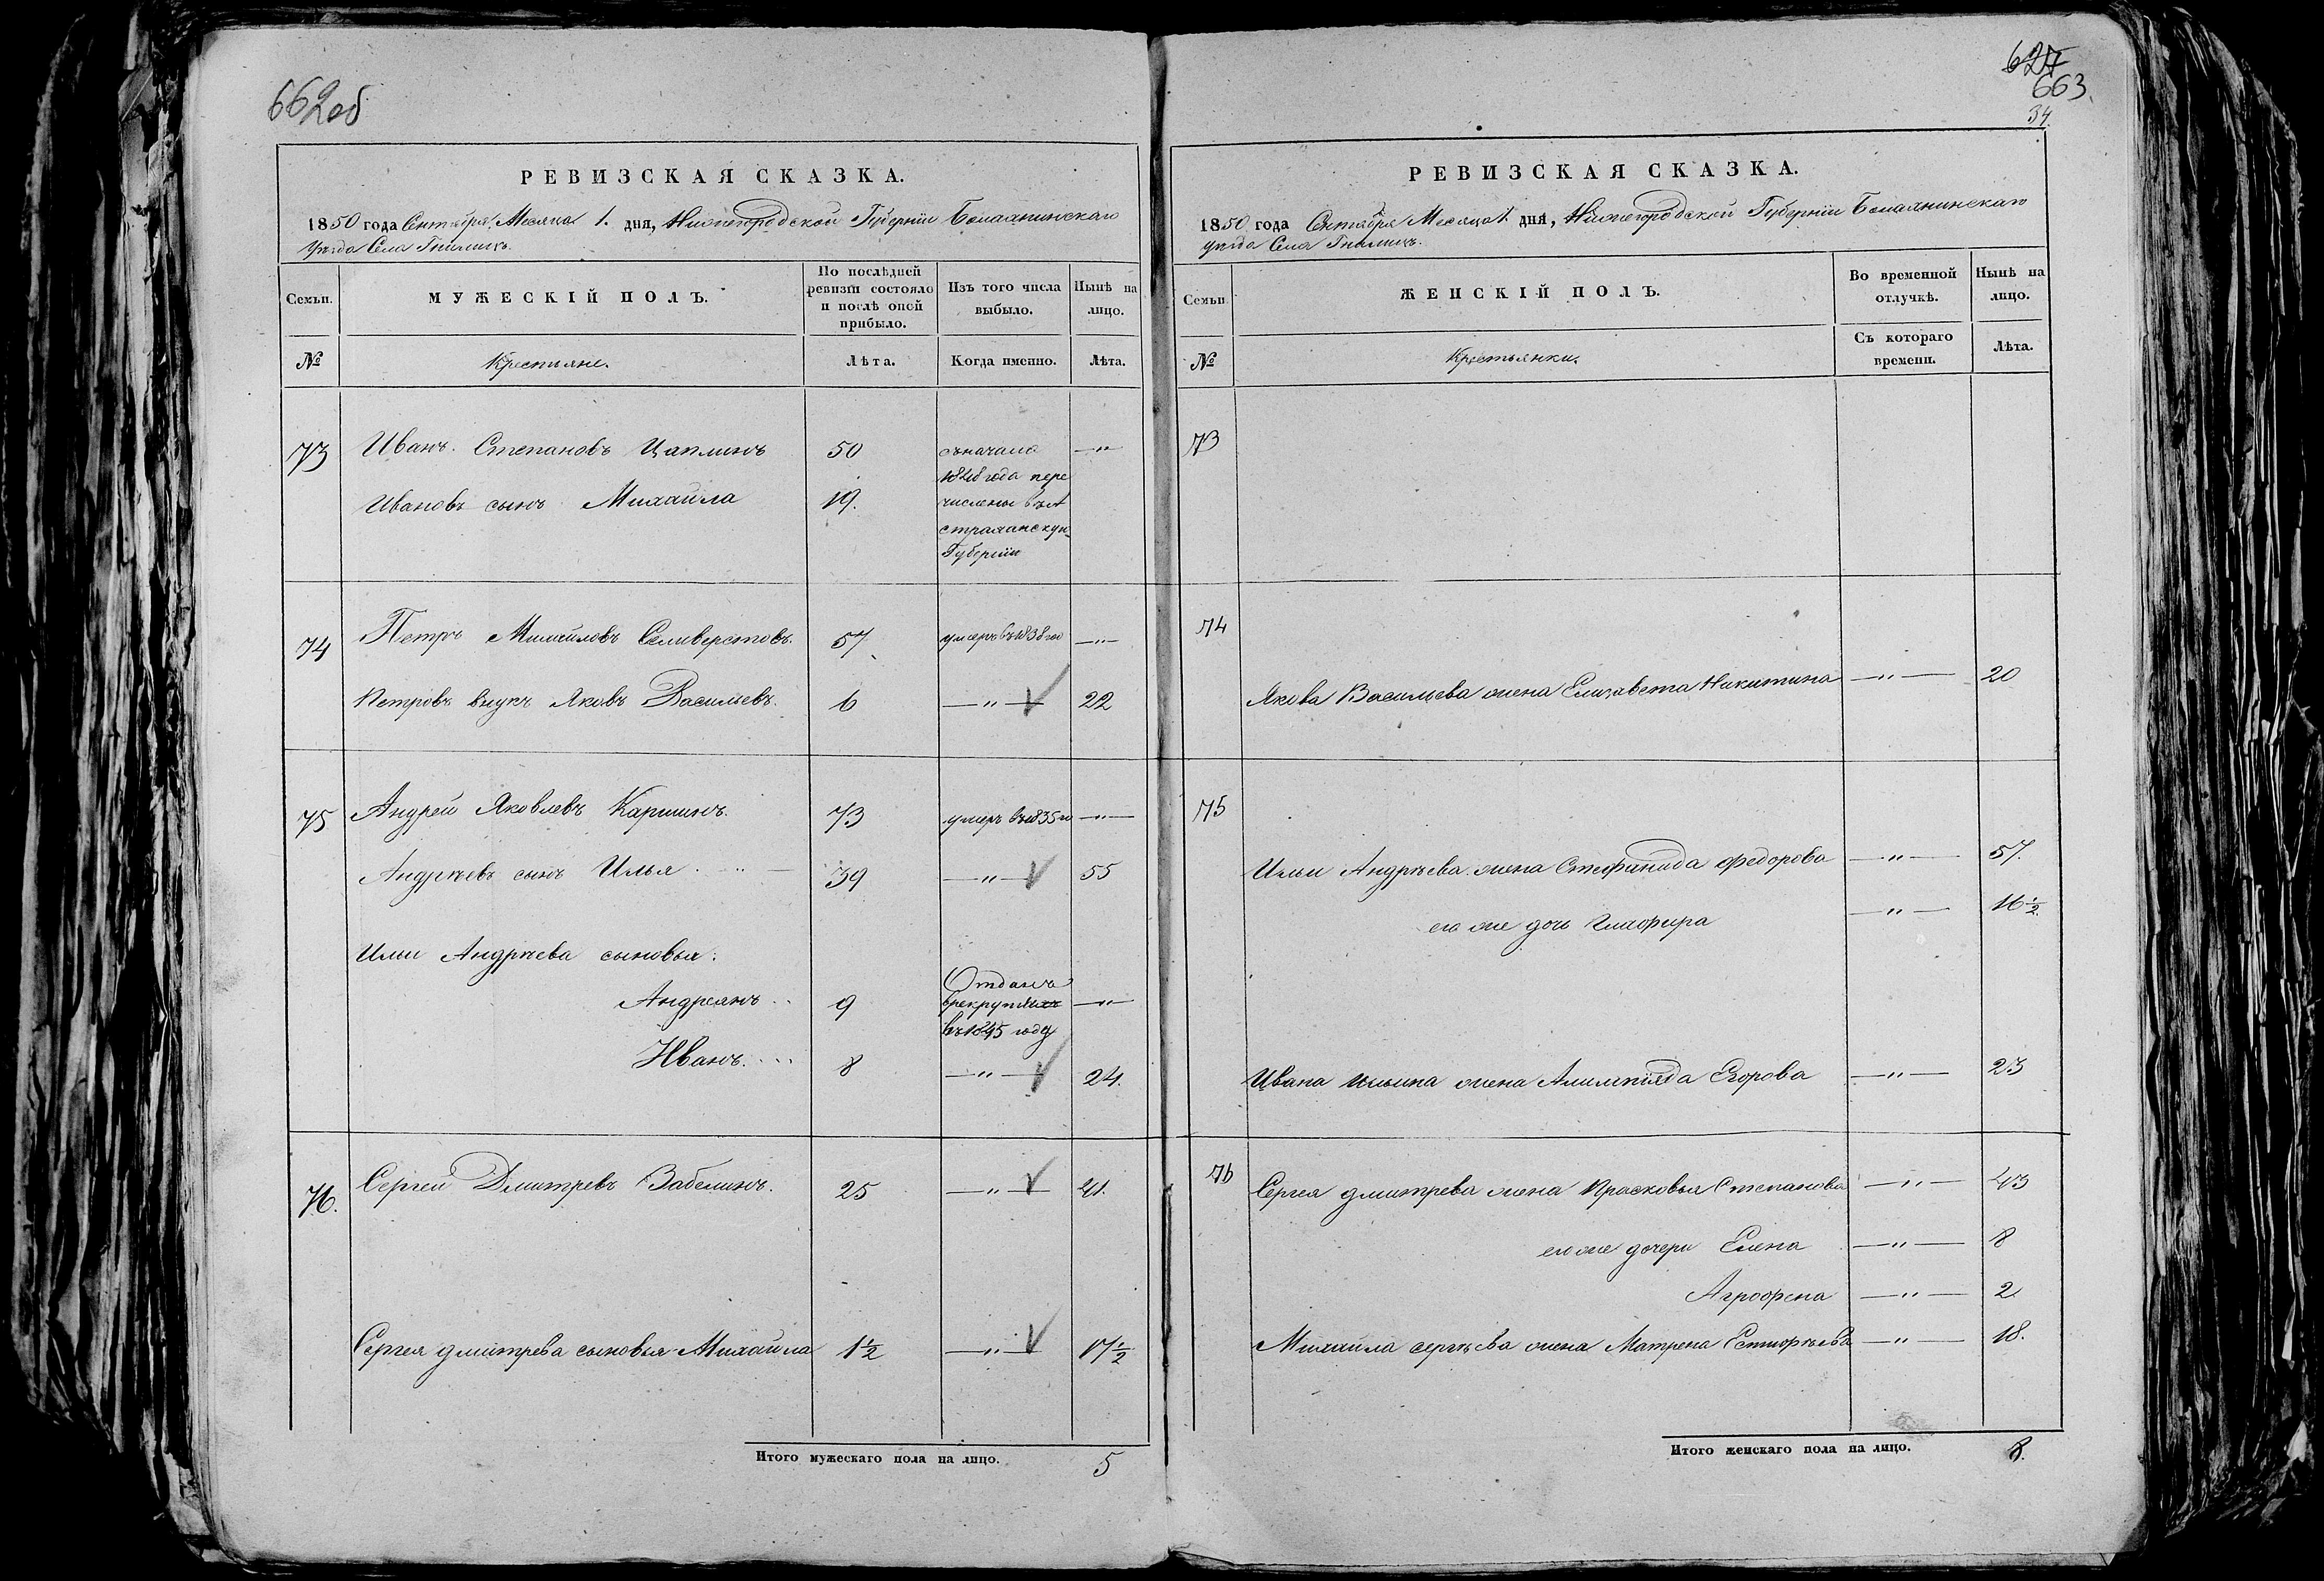 662 об
РЕВИЗСКАЯ СКАЗКА.
1850 года Сентября Месяца 1. дня, Нижегородской Губерніи Балахнинскаго
Уѣзда Села Гнилицъ.
Семьи.
МУЖЕСКІЙ ПОЛЪ.
По послѣдней ревизіи состояло и послѣ оной прибыло.
Изъ того числа выбыло.
Нынѣ на лицо.
№
Крестьяне.
Лѣта.
Когда именно.
Лѣта.
73 Иванъ Степановъ Цаплинъ 50 съ начала —"—
1848 года пере
Ивановъ сынъ Михайла 19. числены въ А
страханскую
Губернію
74 Петръ Михайловъ Селиверстовъ. 57 умеръ въ 1838 го —"—
Петровъ внукъ Яковъ Васильевъ. 6 —"— √ 22
75 Андрей Яковлевъ Каршинъ. 73 умеръ въ 1835 го —"—
Андрѣевъ сынъ Илья 39 —"— √ 55
Ильи Андрѣева сыновья:
Андреянъ 9 Отданъ —"—
в рекруты
въ 1845 году
Иванъ. 8 —"— √ 24.
76. Сергей Дмитревъ Забелинъ. 25 —"— √ 41.
Сергея Дмитрева сыновья Михайла 1½ —"— √ 17½
Итого мужескаго пола на лицо. 5
627
663.
34.
РЕВИЗСКАЯ СКАЗКА.
1850 года Сентября Месяца 1. дня, Нижегородской Губерніи Балахнинскаго
уѣзда Села Гнилицъ.
Семьи.
ЖЕНСКІЙ ПОЛЪ.
Во временной отлучкѣ.
Нынѣ на лицо.
№
Крестьянки.
Съ котораго времени.
Лѣта.
73
74
Якова Васильева жена Елизавета Никитина —"— 20
75
Ильи Андрѣева жена Стефанида Федорова —"— 57.
его же дочь Глафира —"— 16½.
Ивана Ильина жена Алимпияда Егорова —"— 23
76 Сергея Дмитрева жена Прасковья Степанова —"— 43
его же дочери Елена —"— 8
Агрофена —"— 2
Михаила Сергѣева жена Матрена —"— 18.
Итого женскаго пола на лицо. 8.